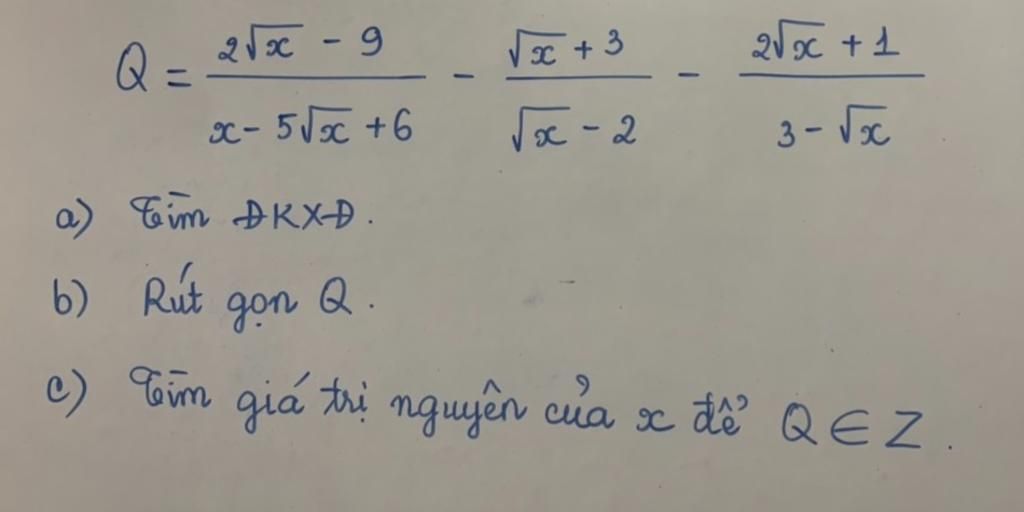 Q = \frac{2\sqrt{x} - 9}{x - 5\sqrt{x} + 6} - \frac{\sqrt{x} + 3}{\sqrt{x} - 2} - \frac{2\sqrt{x} + 1}{3 - \sqrt{x}}
a) Tìm ĐKXĐ.
b) Rút gọn Q.
c) Tìm giá trị nguyên của x để Q ∈ Z.